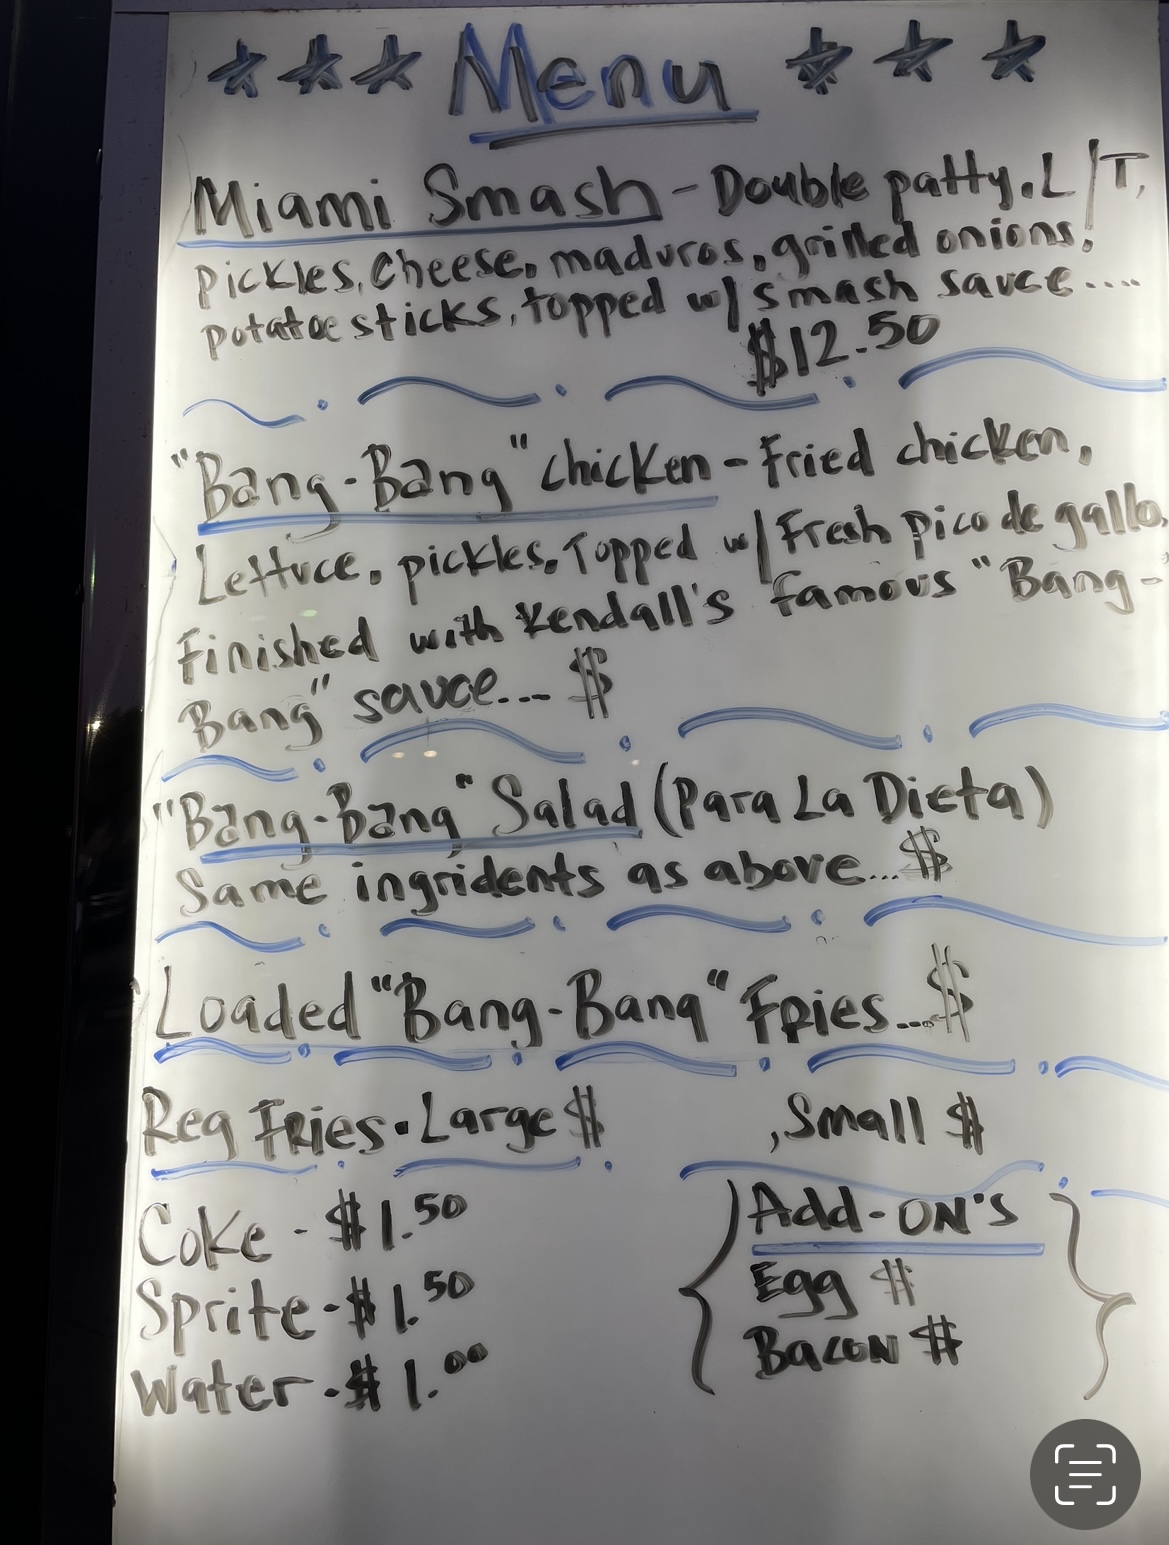 *** Menu ***
Miami Smash - Double patty, L/T,
pickles, cheese, maduros, grilled onions,
potatoe sticks, topped w/ smash sauce....
$12.50
"Bang-Bang" chicken - Fried chicken,
Lettuce, pickles, Topped w/ Fresh pico de gallo,
Finished with Kendall's famous "Bang-
Bang" sauce... $
"Bang-Bang" Salad (Para La Dieta)
Same ingridents as above... $
Loaded "Bang-Bang" Fries... $
Reg Fries. Large $ , Small $
Coke - $1.50
Sprite - $1.50
Water - $1.00
Add-ON's
Egg $
Bacon $